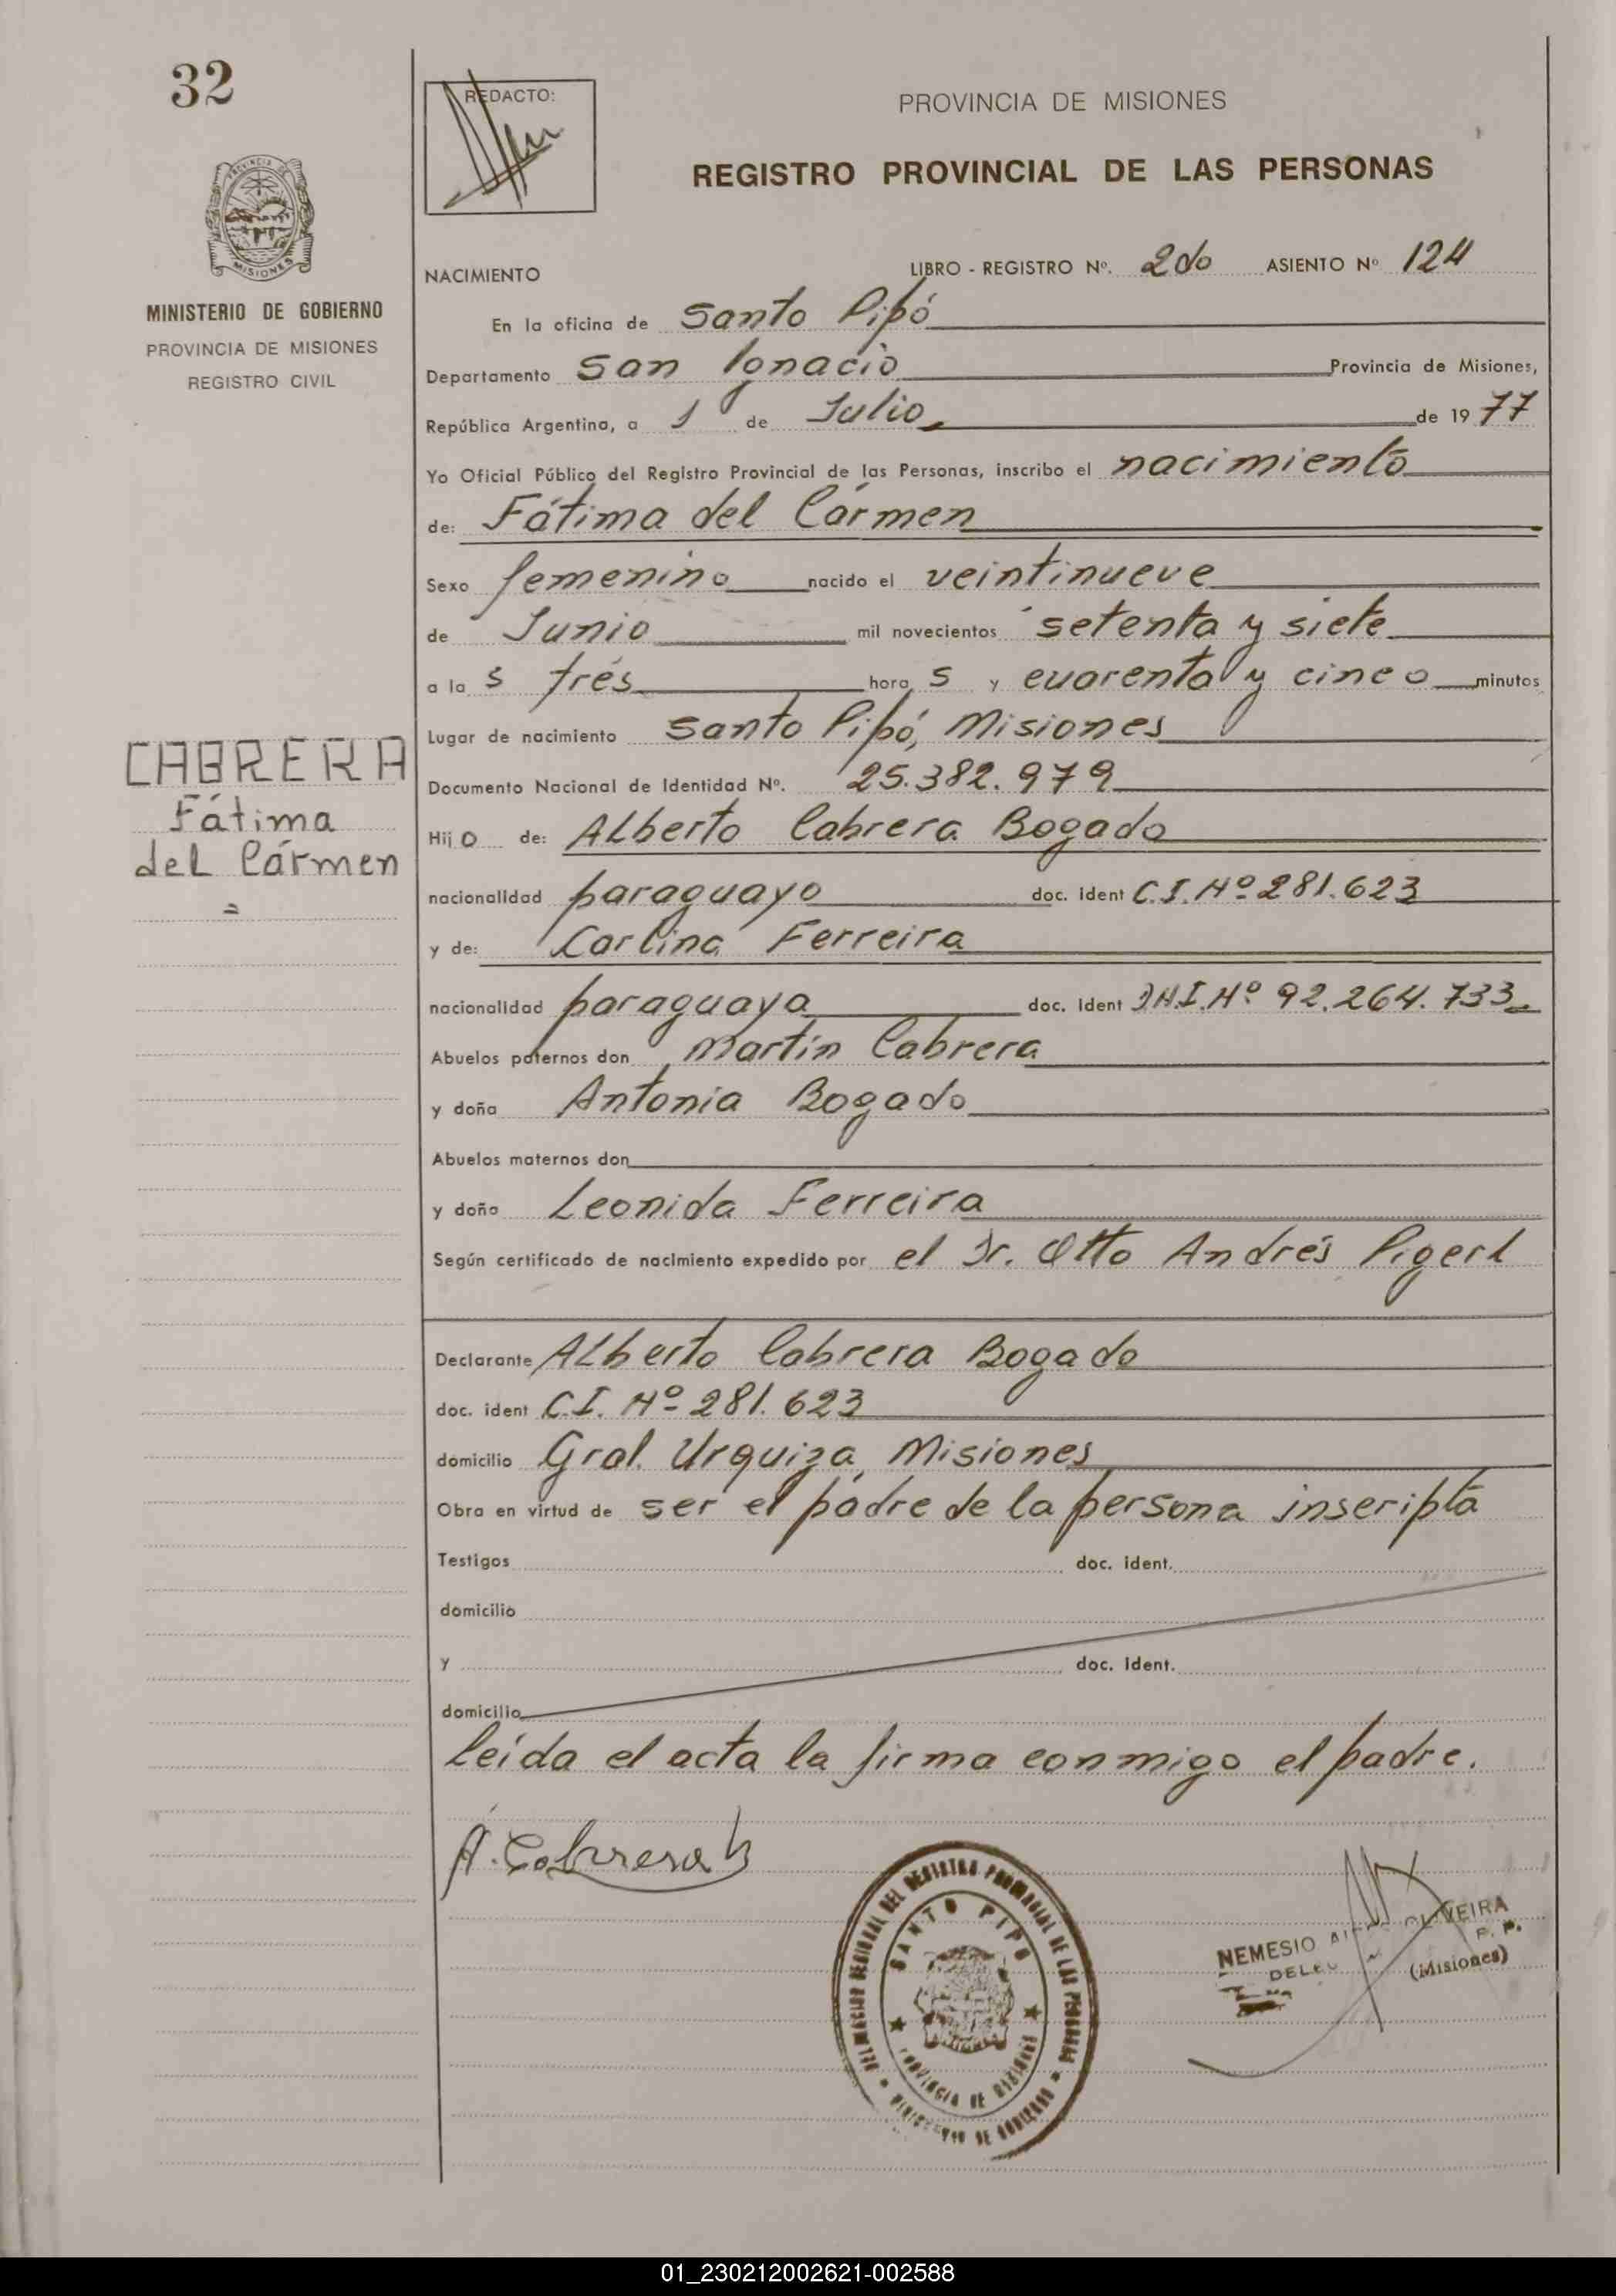 32
REDACTO:
PROVINCIA DE MISIONES
REGISTRO PROVINCIAL DE LAS PERSONAS
PROVINCIA DE
MISIONES
MINISTERIO DE GOBIERNO
PROVINCIA DE MISIONES
REGISTRO CIVIL
NACIMIENTO
LIBRO - REGISTRO Nº. 2do ASIENTO Nº 124
En la oficina de Santo Pipó
Departamento San Ignacio Provincia de Misiones,
República Argentina, a 1 de Julio de 19 77
Yo Oficial Público del Registro Provincial de las Personas, inscribo el nacimiento
de: Fátima del Cármen
Sexo femenino nacido el veintinueve
de Junio mil novecientos setenta y siete
a la s trés hora s y cuarenta y cinco minutos
Lugar de nacimiento Santo Pipó, Misiones
CABRERA
Fátima
del Cármen
Documento Nacional de Identidad Nº. 25.382.979
Hij o de: Alberto Cabrera Bogado
nacionalidad paraguayo doc. ident C.I. Nº 281.623
y de: Carlina Ferreira
nacionalidad paraguaya doc. ident D.N.I. Nº 92.264.733
Abuelos paternos don Martín Cabrera
y doña Antonia Bogado
Abuelos maternos don
y doña Leonida Ferreira
Según certificado de nacimiento expedido por el Dr. Otto Andrés Pigerl
Declarante Alberto Cabrera Bogado
doc. ident C.I. Nº 281.623
domicilio Gral. Urquiza, Misiones
Obra en virtud de ser el padre de la persona inscripta
Testigos doc. ident.
domicilio
y doc. ident.
domicilio
leída el acta la firma conmigo el padre.
A. Cabrera b
DELEGACION REGIONAL DEL REGISTRO PROVINCIAL DE LAS PERSONAS
SANTO PIPO
PROVINCIA DE MISIONES
MINISTERIO DE GOBIERNO
NEMESIO OLIVEIRA
(Misiones)
01_230212002621-002588